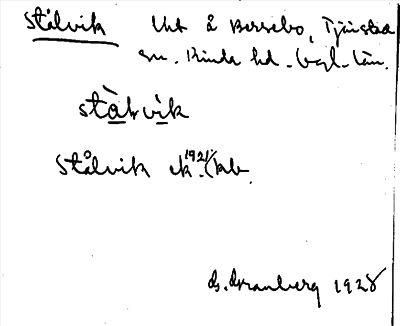 Stålvik Utj å Borrebo, Tjärstad
sn. Kinda hd. Ögl. län.
stålvik
Stålvik ek. 1921/kb.
G. Granberg 1928